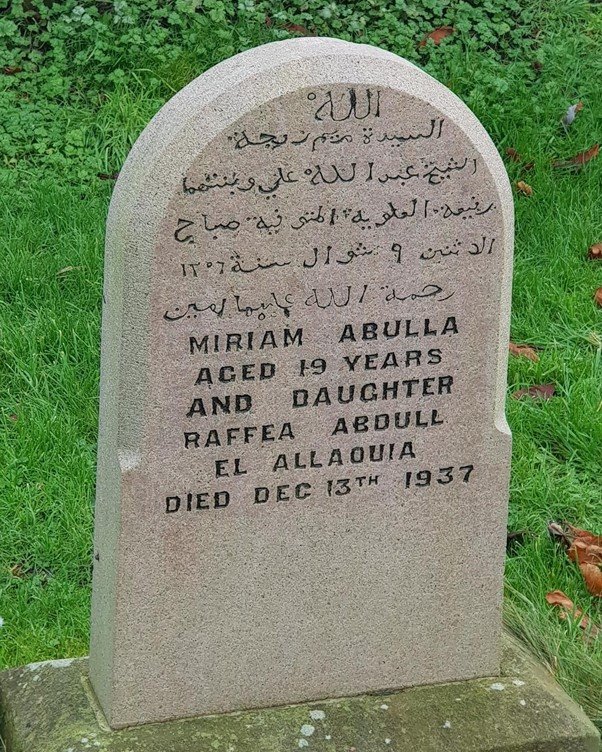 الله
السيدة مريم زوجة
الشيخ عبد الله علي وبنتهما
رفيعة العلوية المتوفية صباح
الاثنين ٩ شوال سنة ١٣٥٦
رحمة الله عليهما امين
MIRIAM ABULLA
AGED 19 YEARS
AND DAUGHTER
RAFFEA ABDULL
EL ALLAOUIA
DIED DEC 13TH 1937